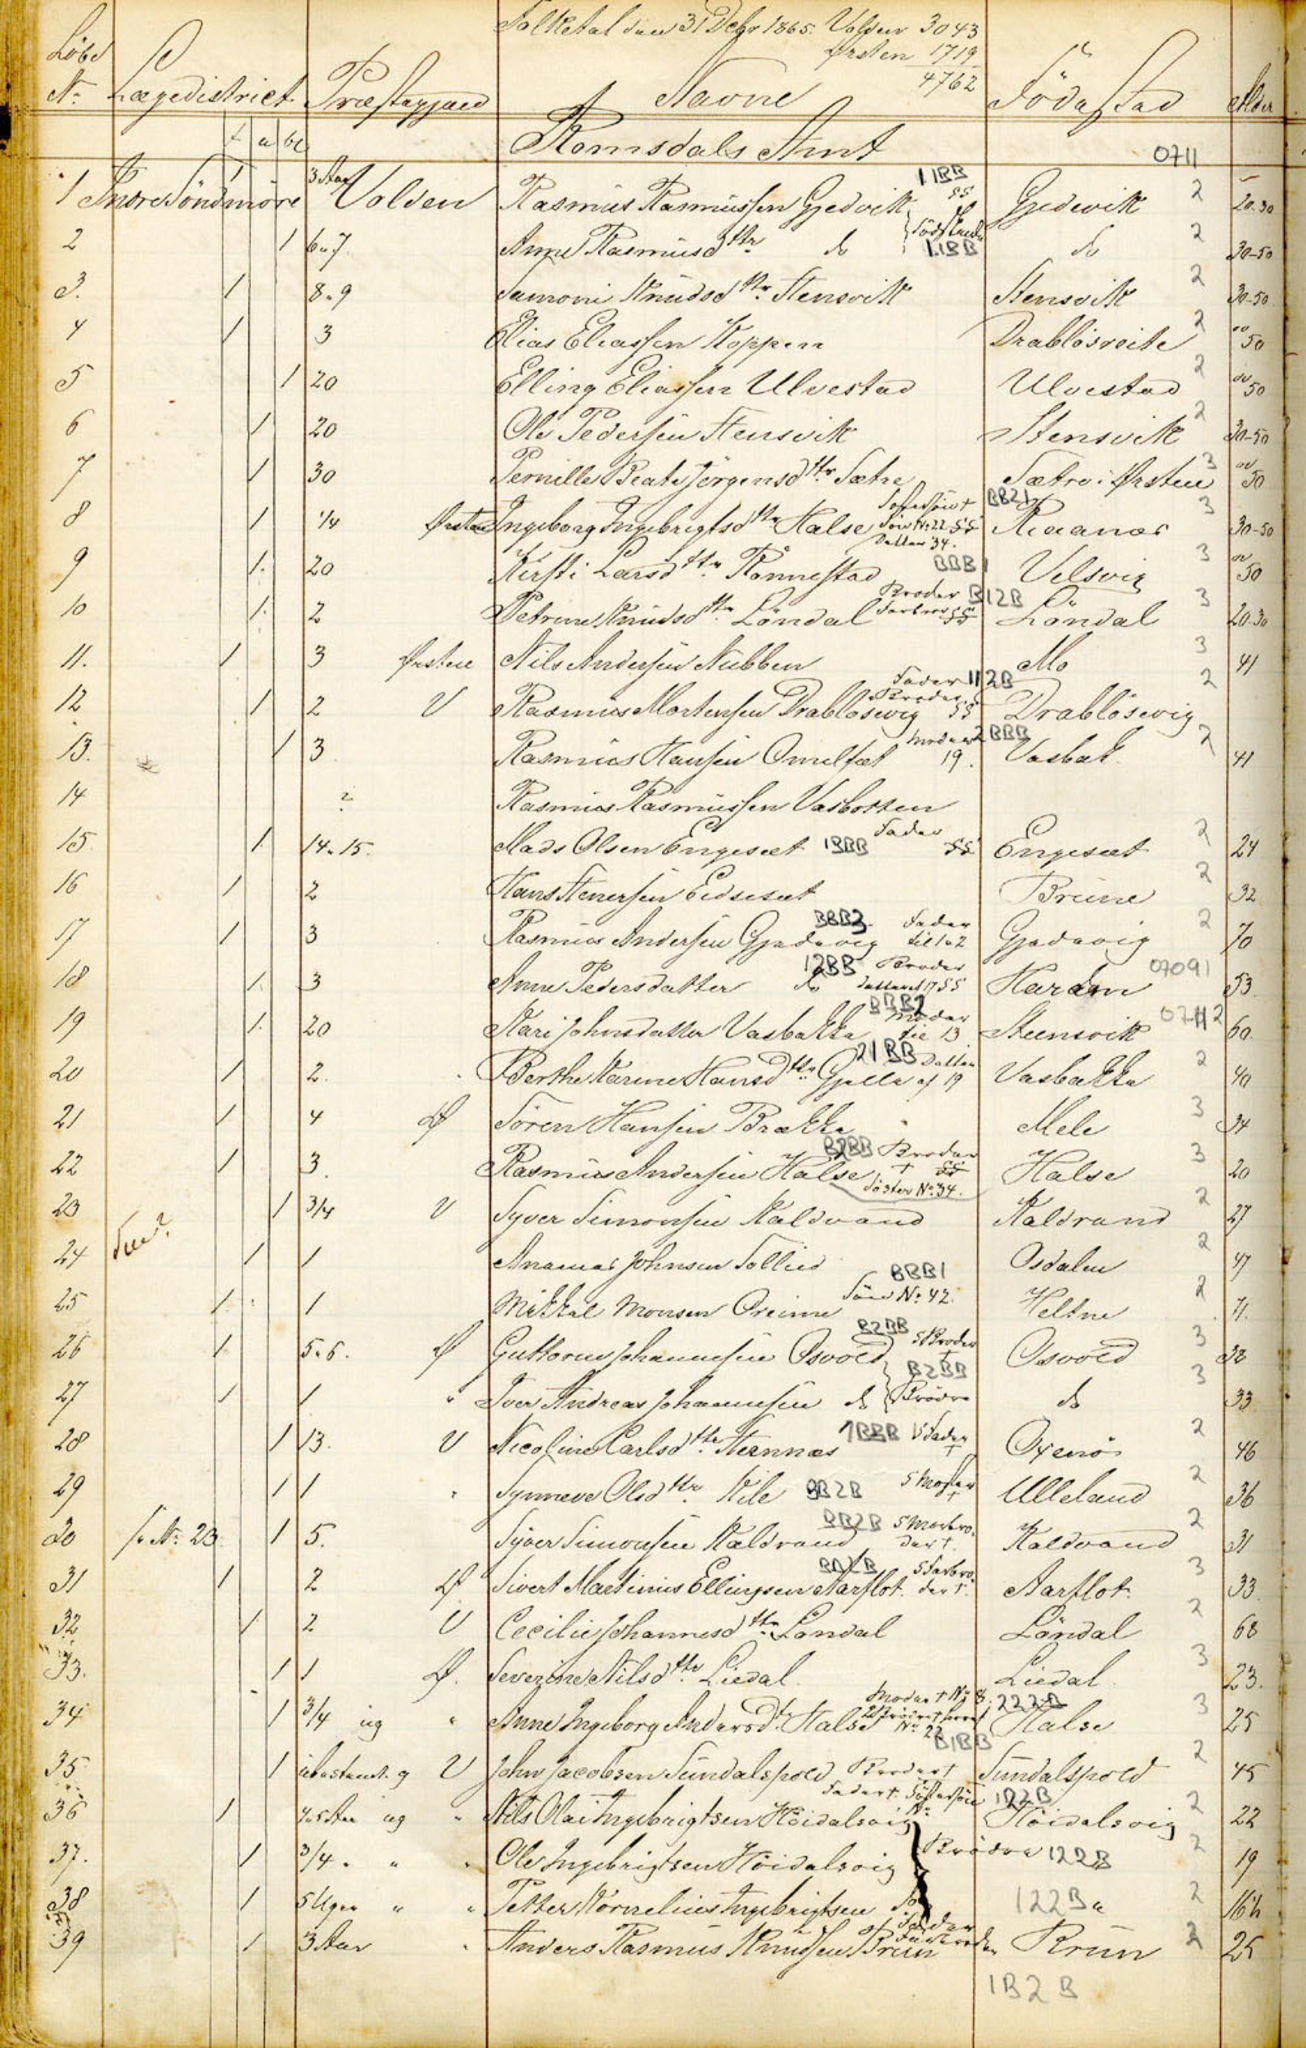 Folketal den 31 Debr 1865. Volden 3043
Ørsten 1719
4762
Löbe No Lægedistrict Præstegjæld Navne Födested Alder
t a bl
Romsdals Amt 0711
1 Indre Söndmöre 1 3 Aar Volden Rasmus Rasmussen Gjedvik 11BB Gjedevik 2 20-30
2 1 6 a 7 Anne Rasmusdtr do 11BB do 2 30-50
3. 1 8 a 9 Knudsdtr Stensvik Stensvik 2 30-50
4 1 3 Elias Eliassen Koppen Drablösreite 2 ov 50
5 1 20 Elling Eliassen Ulvestad Ulvestad 2 ov 50
6 1 20 Ole Pedersen Stensvik Stensvik 2 30-50
7 1 30 Pernille Beate Jörgensdtr Sætre Sætre i Ørsten 3 ov 50
8 1 1/4 Ørsten Ingeborg Ingebrigtsdtr Halse Sön No 22 Datter 34. BB21 3 30-50
9 1 20 Kirsti Larsdtr Rönnestad BBB1 Velsvig 3 ov 50
10 1 2 Petrine Knudsdtr Löndal Broder Farbror B12B Löndal 3 20-30
11. 1 3 Ørsten Nils Andersen Nubben Mo 3 41
12 1 2 V Rasmus Mortensen Drablösevig Fader Broder 112B Drablösevig 2
13. 1 3 Rasmus Hansen Moder 19. 2BBB Vasbak 2 41
14 2 Rasmus Rasmussen Vasbotten
15. 1 14 a 15. Mads Olsen Engeset 1BBB Fader Engeset 2 24
16 1 2 Hans Stenersen Eidseset Brune 2 32
17 1 3 Rasmus Andersen Gjedevig BBB2 Fader til 1 a 2 Gjedevig 2 70
18 1 3 Anne Pedersdatter do 12BB Broder 07091 53
19 1 20 Kari Johnsdatter Vasbakke BBB2 Moder til 13 Steensvik 0711 2 60
20 1 2. Berthe Karine Hansdtr 21BB Datter af 19 Vasbakke 2 40
21 1 4 Ø Sören Hansen Brekke Mele 3 34
22 1 3. Rasmus Andersen Halse B2BB Broder † Söster No 34. Halse 3 20
23 1 3/4 V Syver Simonsen Kaldvand Kaldvand 2 27
24 1 1 Johnsen Follied Osdalen 2 47
25 1 1 Mikkel Monsen Greime BBB1 Sön No 42. Heltne 2 71.
26 1 5 a 6. Ø Guttorm Johannesen Osvold B2BB Broder † Osvold 3 38
27 1 1 " Iver Andreas Johannesen do B2BB Brödre do 3 33
28 1 13. V Nicoline Carlsdtr Stennæs 1BBB Fader † 2 46
29 1 1 " Synneve Olsdtr Kile BB2B S Moster † Ulleland 2 36
30 No 23 1 5. Syver Simonsen Kaldvand BB2B S Morbroder †. Kaldvand 2 31
31 1 2 Ø. Sivert Martinius Ellingsen Aarflot. S Farbroder †. Aarflot 3 33
32 1 2 V Cecilie Johannesdtr Löndal Löndal 2 68
33. 1 1 Ø. Severine Nilsdtr Liedal. Liedal. 3 23.
34 1 3/4 ug " Anne Ingeborg Andersdtr Halse Moder † No 8. No 22 222B Halse 3 25
35. 1 ubestemt. g V John Jacobsen Sundalspold Broder † B1BB Sundalspold 2 45
36 1 ug " Nils Olai Ingebrigtsen Höidalsvig Fader † Söstersön 122B Höidalsvig 2 22
37. 1 3/4 " " " Ole Ingebrigtsen Höidalsvig Brödre 122B 2 19
38 1 5 Uger " " Petter Kornelius Ingebrigtsen do 122B 2 16½
39 1 3 Aar " Anders Rasmus Knudsen Brun Brun 2 25
1B2B